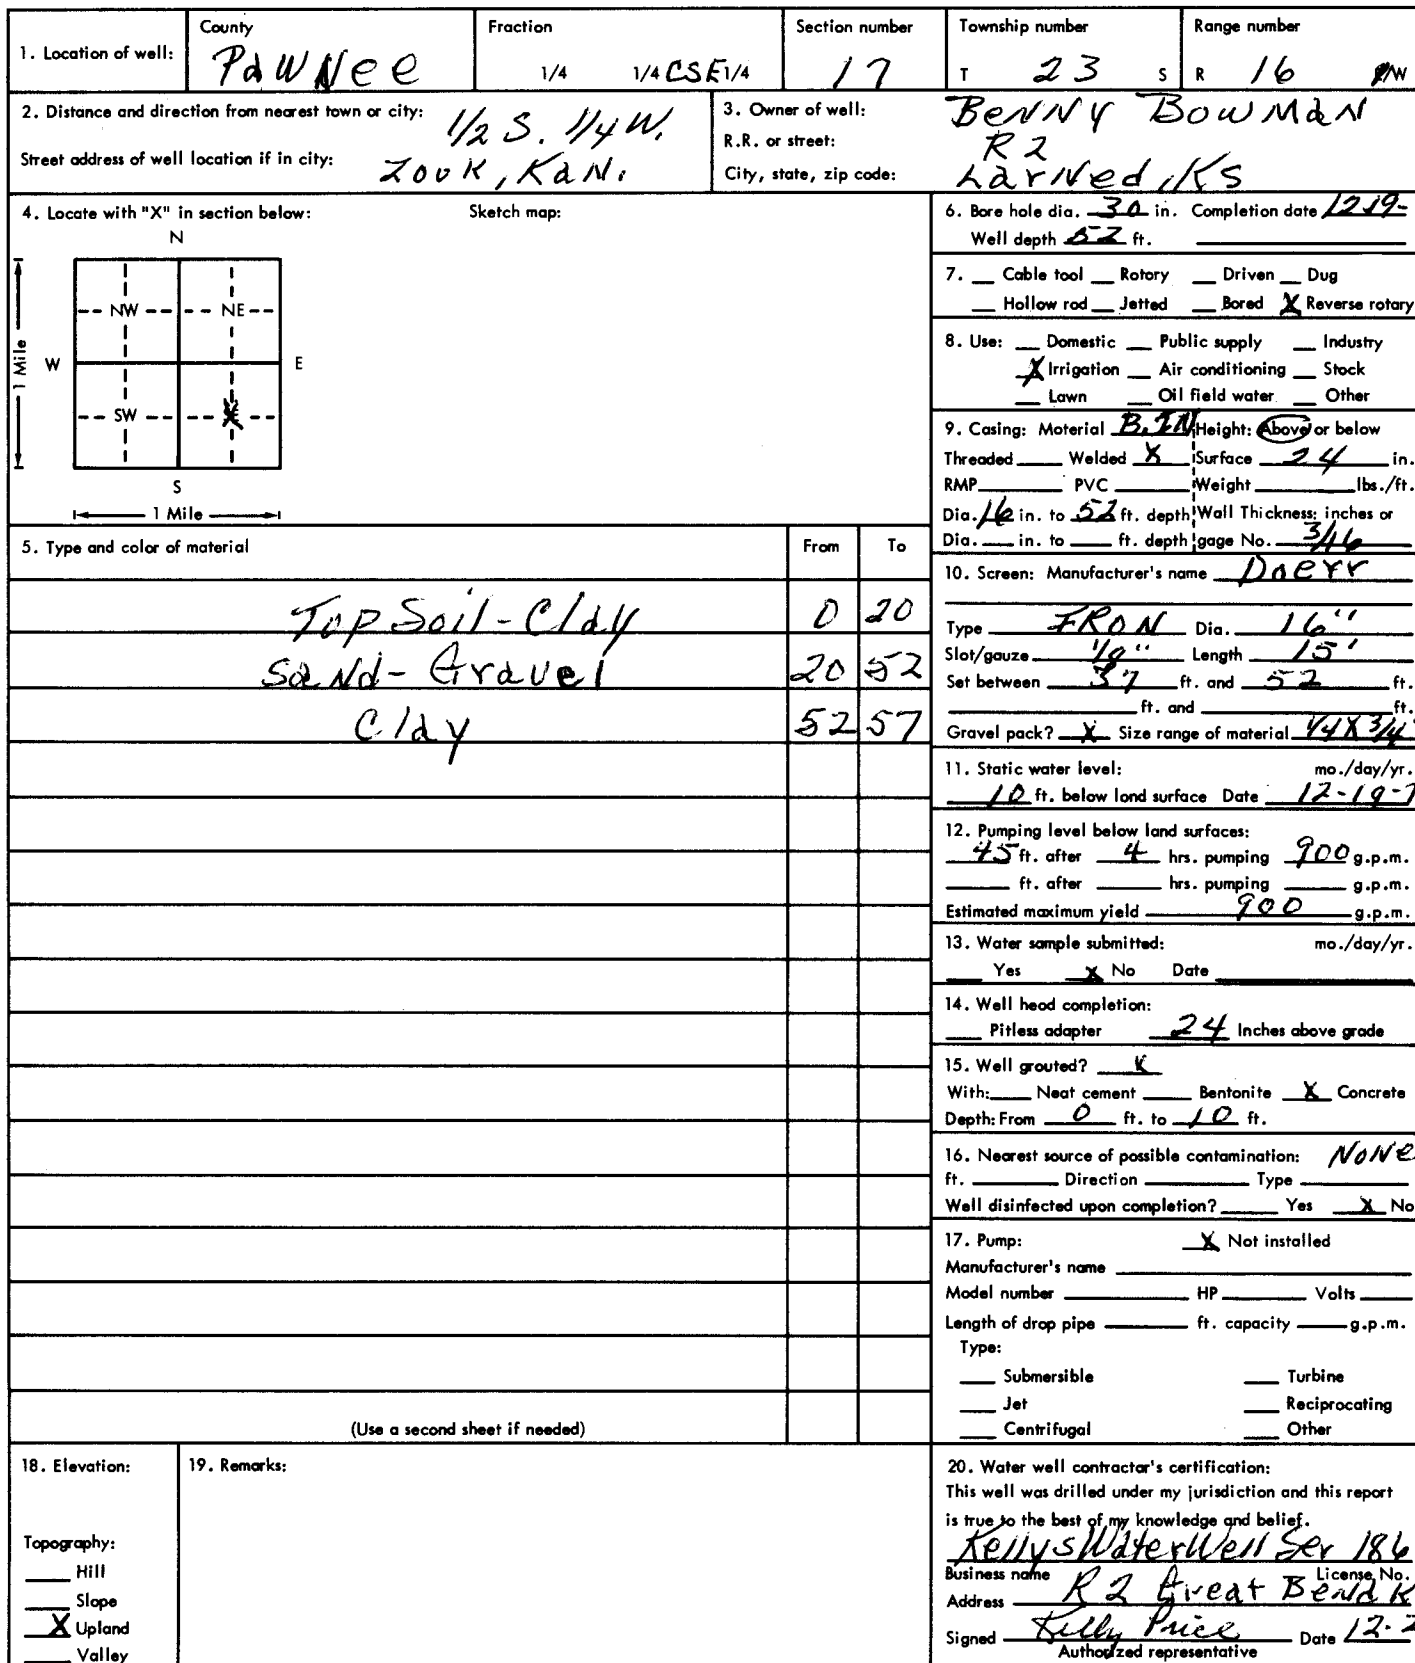 1. Location of well:
County
PAWNee
Fraction
1/4 1/4 CSE 1/4
Section number
17
Township number
T 23 S
Range number
R 16 W
2. Distance and direction from nearest town or city: 1/2 S. 1/4 W.
Street address of well location if in city: Zook, Kan.
3. Owner of well: Benny Bowman
R.R. or street: R 2
City, state, zip code: Larned, KS
4. Locate with "X" in section below:
Sketch map:
N
NW NE
W E
1 Mile
SW X
S
1 Mile
5. Type and color of material From To
Top Soil - Clay 0 20
Sand - Gravel 20 52
Clay 52 57
(Use a second sheet if needed)
6. Bore hole dia. 30 in. Completion date 12-19-
Well depth 52 ft.
7. Cable tool Rotory Driven Dug
Hollow rod Jetted Bored X Reverse rotary
8. Use: Domestic Public supply Industry
X Irrigation Air conditioning Stock
Lawn Oil field water Other
9. Casing: Material B.IN Height: Above or below
Threaded Welded X Surface 24 in.
RMP PVC Weight lbs./ft.
Dia. 16 in. to 52 ft. depth Wall Thickness: inches or
Dia. in. to ft. depth gage No. 3/16
10. Screen: Manufacturer's name Doerr
Type IRON Dia. 16"
Slot/gauze Length 15'
Set between 37 ft. and 52 ft.
ft. and ft.
Gravel pack? X Size range of material 1/4 X 3/4"
11. Static water level: mo./day/yr.
10 ft. below land surface Date 12-19-7
12. Pumping level below land surfaces:
45 ft. after 4 hrs. pumping 900 g.p.m.
ft. after hrs. pumping g.p.m.
Estimated maximum yield 900 g.p.m.
13. Water sample submitted: mo./day/yr.
Yes X No Date
14. Well head completion:
Pitless adapter 24 Inches above grade
15. Well grouted? X
With: Neat cement Bentonite X Concrete
Depth: From 0 ft. to 10 ft.
16. Nearest source of possible contamination: NONE
ft. Direction Type
Well disinfected upon completion? Yes X No
17. Pump: X Not installed
Manufacturer's name
Model number HP Volts
Length of drop pipe ft. capacity g.p.m.
Type:
Submersible Turbine
Jet Reciprocating
Centrifugal Other
18. Elevation:
Topography:
Hill
Slope
X Upland
Valley
19. Remarks:
20. Water well contractor's certification:
This well was drilled under my jurisdiction and this report
is true to the best of my knowledge and belief.
Kellys Water Well Ser 186
Business name License No.
Address R 2 Great Bend K
Signed Kelly Price Date 12-2
Authorized representative